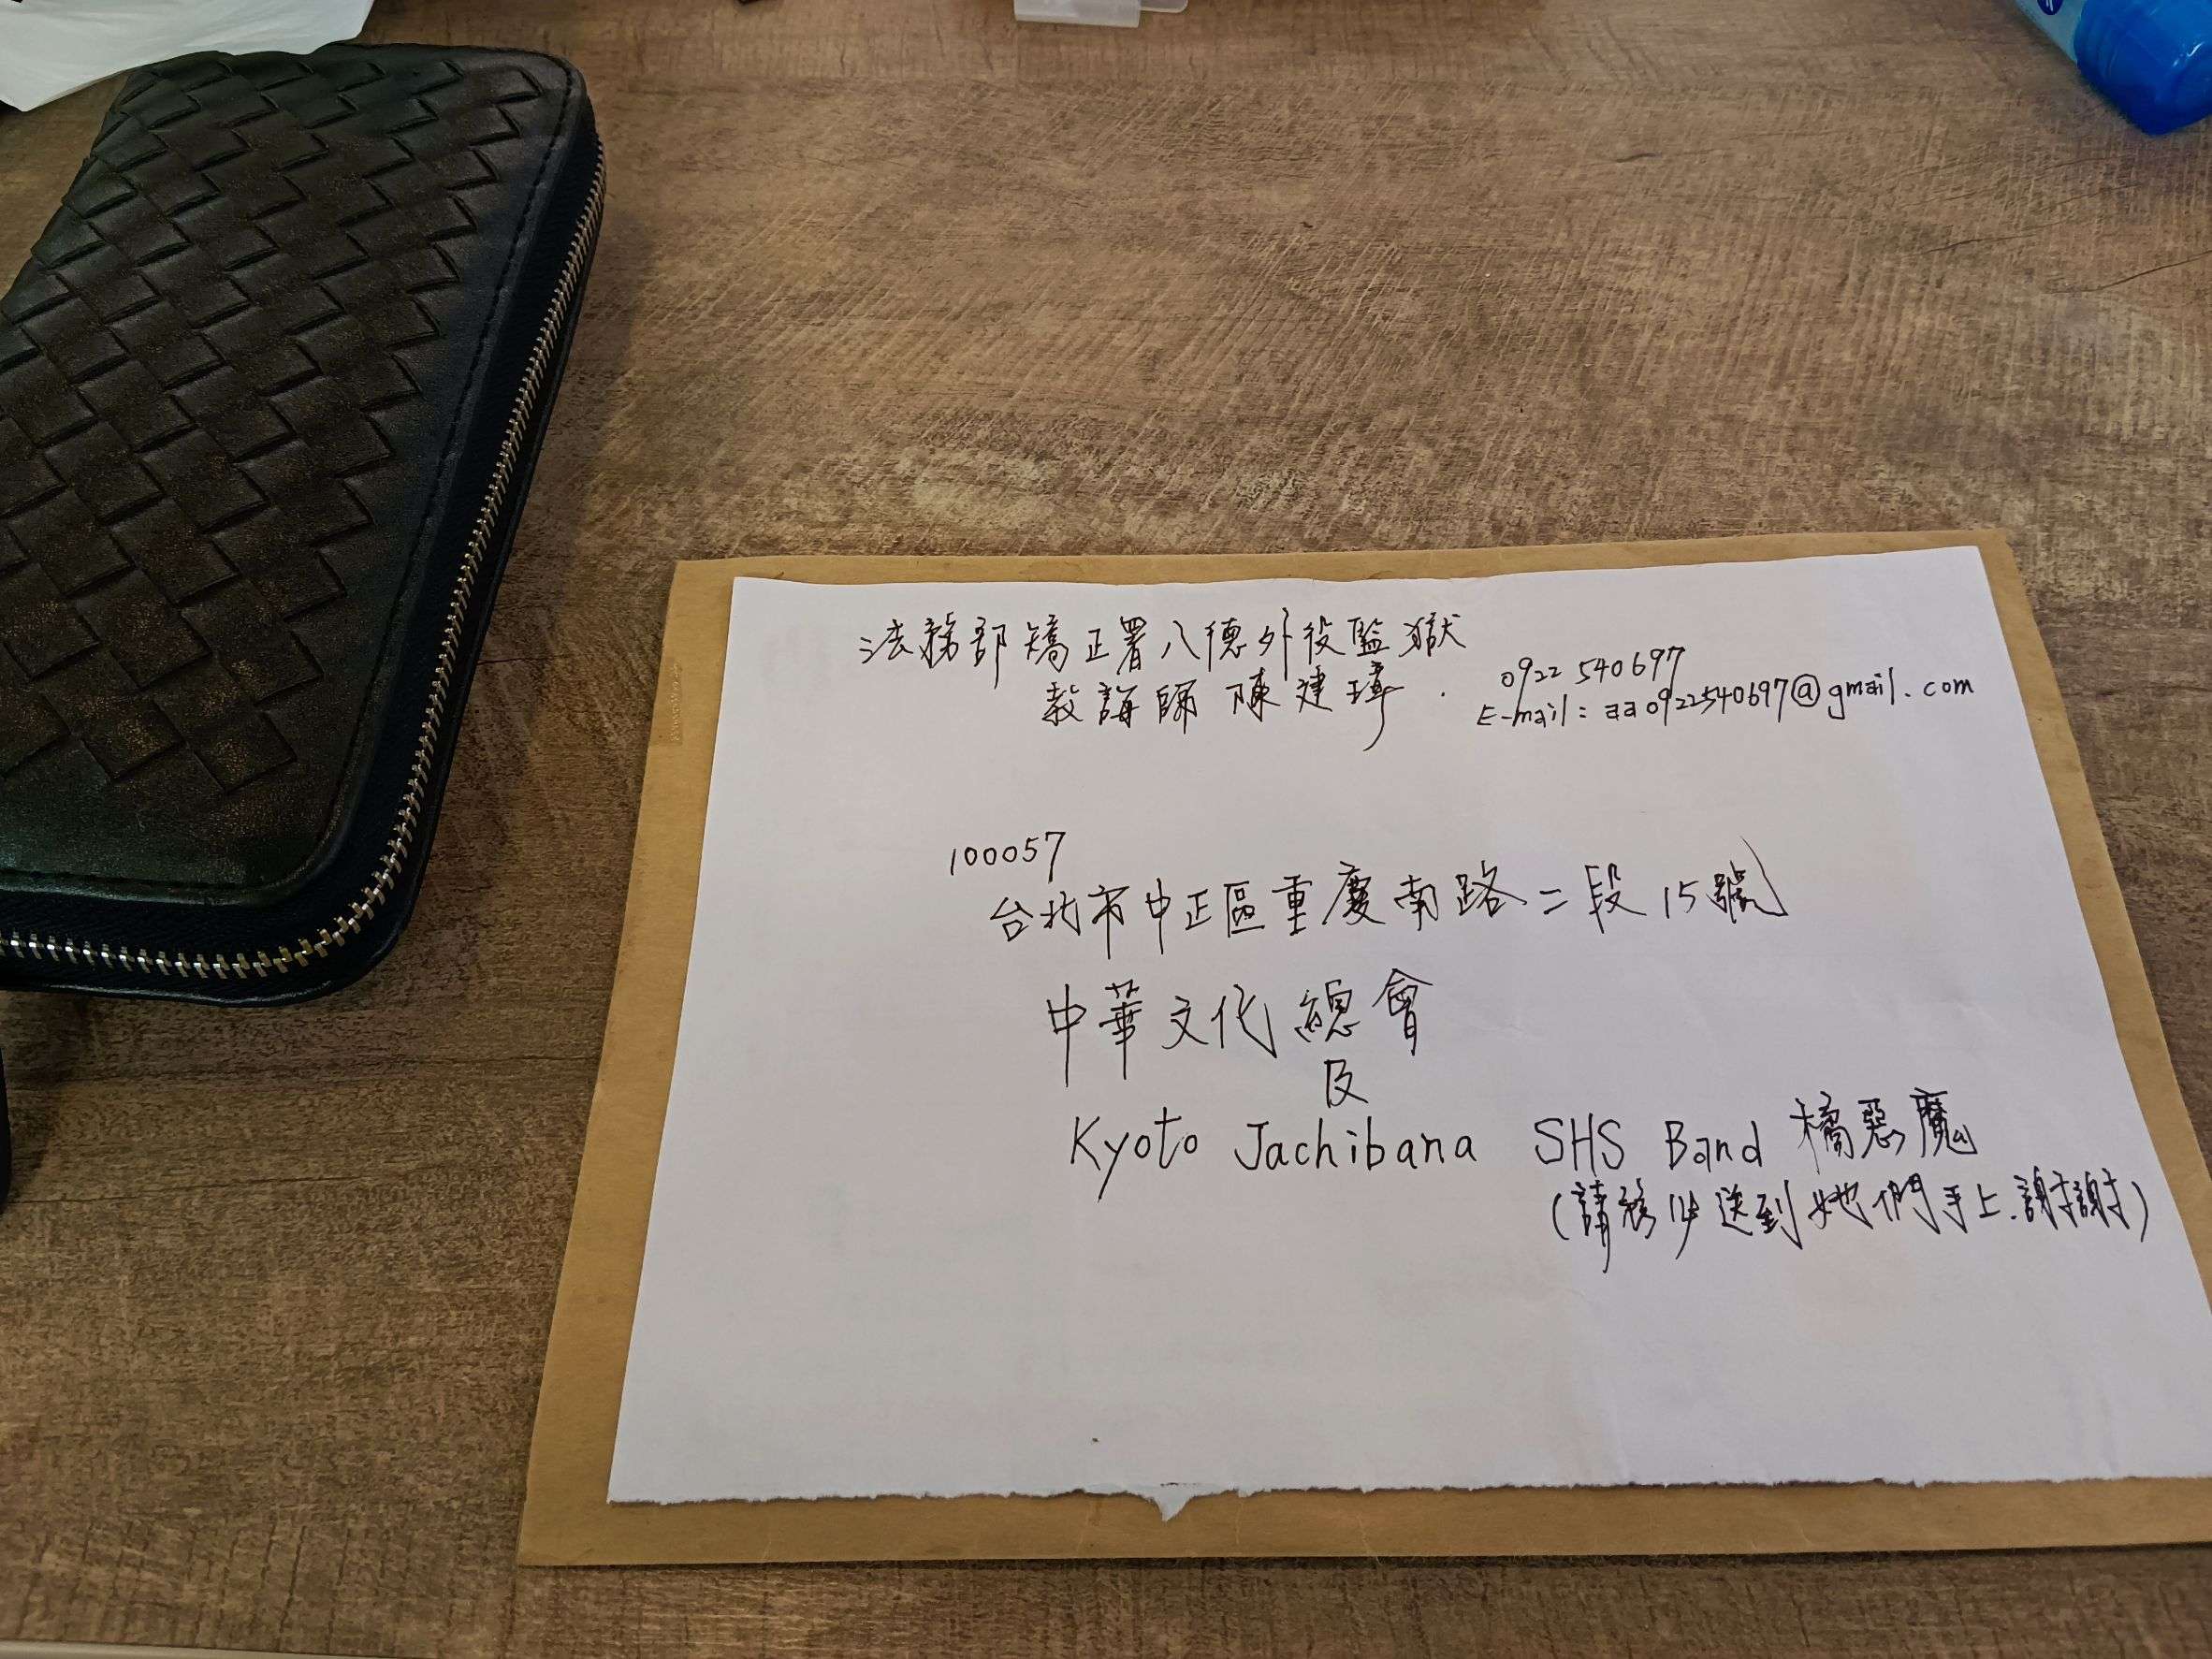 法務部矯正署八德外役監獄
教誨師 陳建璋.
0922 540697
E-mail: aa0922540697@gmail.com
100057
台北市中正區重慶南路二段15號
中華文化總會
及
Kyoto Jachibana SHS Band 橘惡魔
(請務必送到她們手上.謝謝)